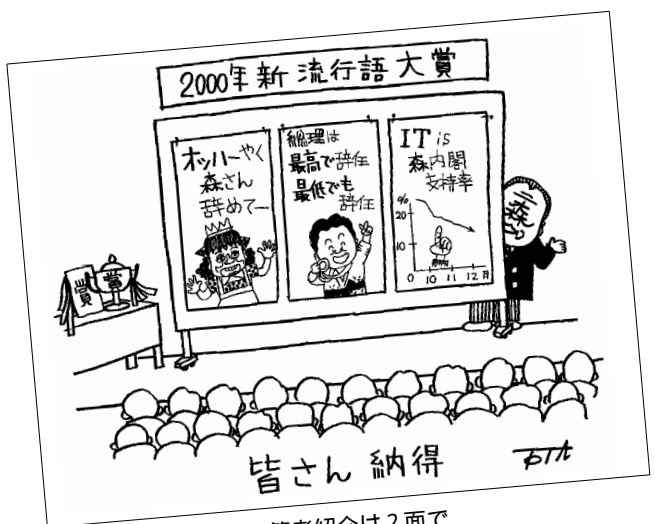 2000年新流行語大賞
オッハーやく
森さん
辞めてー
総理は
最高で辞任
最低でも
辞任
IT is
森内閣
支持率
%
20
10
0 10 11 12月
森
賞
賞
皆さん 納得
筆者紹介は2面で